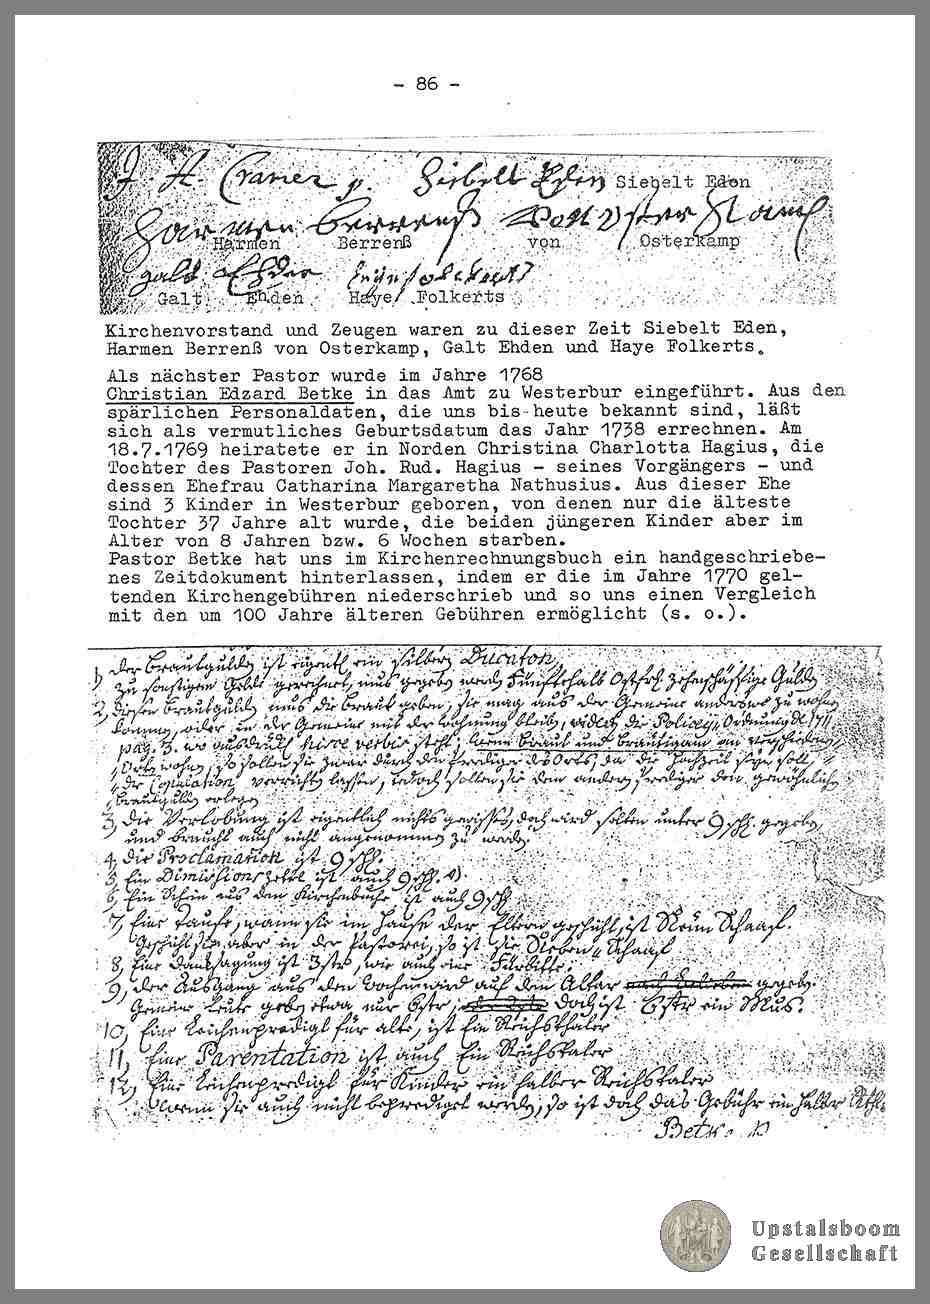 - 86 -
J A Cramer p. Siebelt Eden Siebelt Eden
Harmen Berrenß von Osterkamp
Harmen Berrenß von Osterkamp
Galt Ehden Haye Folkerts
Galt Ehden Haye Folkerts
Kirchenvorstand und Zeugen waren zu dieser Zeit Siebelt Eden,
Harmen Berrenß von Osterkamp, Galt Ehden und Haye Folkerts.
Als nächster Pastor wurde im Jahre 1768
Christian Edzard Betke in das Amt zu Westerbur eingeführt. Aus den
spärlichen Personaldaten, die uns bis-heute bekannt sind, läßt
sich als vermutliches Geburtsdatum das Jahr 1738 errechnen. Am
18.7.1769 heiratete er in Norden Christina Charlotta Hagius, die
Tochter des Pastoren Joh. Rud. Hagius - seines Vorgängers - und
dessen Ehefrau Catharina Margaretha Nathusius. Aus dieser Ehe
sind 3 Kinder in Westerbur geboren, von denen nur die älteste
Tochter 37 Jahre alt wurde, die beiden jüngeren Kinder aber im
Alter von 8 Jahren bzw. 6 Wochen starben.
Pastor Betke hat uns im Kirchenrechnungsbuch ein handgeschriebe-
nes Zeitdokument hinterlassen, indem er die im Jahre 1770 gel-
tenden Kirchengebühren niederschrieb und so uns einen Vergleich
mit den um 100 Jahre älteren Gebühren ermöglicht (s. o.).
1, der Brautgulden ist eigentl. ein silbern Ducaton,
zu sonstigem Gelde gerechnet, mus gegeben werden Fünftehalb Ostfrs. zehenschaffige Guld
2, diesen Brautgulden mus die Braut geben, sie mag aus der Gemeine anderswo zu wohnen
kommen, oder in der Gemeine mit der Wohnung bleiben, die Policey-Ordnung
pag. 3. wo ausdrückl. hisce verbis steht: wenn Braut und Bräutigam an verschiedenen
Orten wohnen, so sollen sie zwar durch die Prediger des Orts, da die Hochzeit seyn soll,
die Copulation verrichten lassen, jedoch sollen sie dem andern Prediger den gewöhnlichen
Brautgulden erlegen
3, die Verlobung ist eigentlich nichts gewisses, doch wird selten unter 9 schl. gegeben,
und braucht auch nicht angenommen zu werden.
4, die Proclamation ist 9 schl.
5, Ein Dimissionszettel ist auch 9 schl.
6, Ein Schein aus dem Kirchenbuche ist auch 9 schl
7, Eine Taufe, wann sie im Hause der Eltern geschicht, ist Neun Schaaf.
Geschicht sie aber in der Pastorei, so ist sie Sieben Schaaf
8, Eine Danksagung ist 3 str, wie auch eine Fürbitte.
9, der Ausgang aus den Wochen wird auf dem Altar gegeben.
Gemeine Leute geben etwa nur 6 str, doch ist 6 str ein Mus.
10, Eine Leichenpredigt für alte, ist Ein Reichsthaler
11, Eine Parentation ist auch Ein Reichstaler
12, Eine Leichenpredigt für Kinder ein halber Reichstaler
Wenn sie auch nicht bepredigt werden, so ist doch das Gebühr ein halber Rthl.
Betke P
Upstalsboom
Gesellschaft